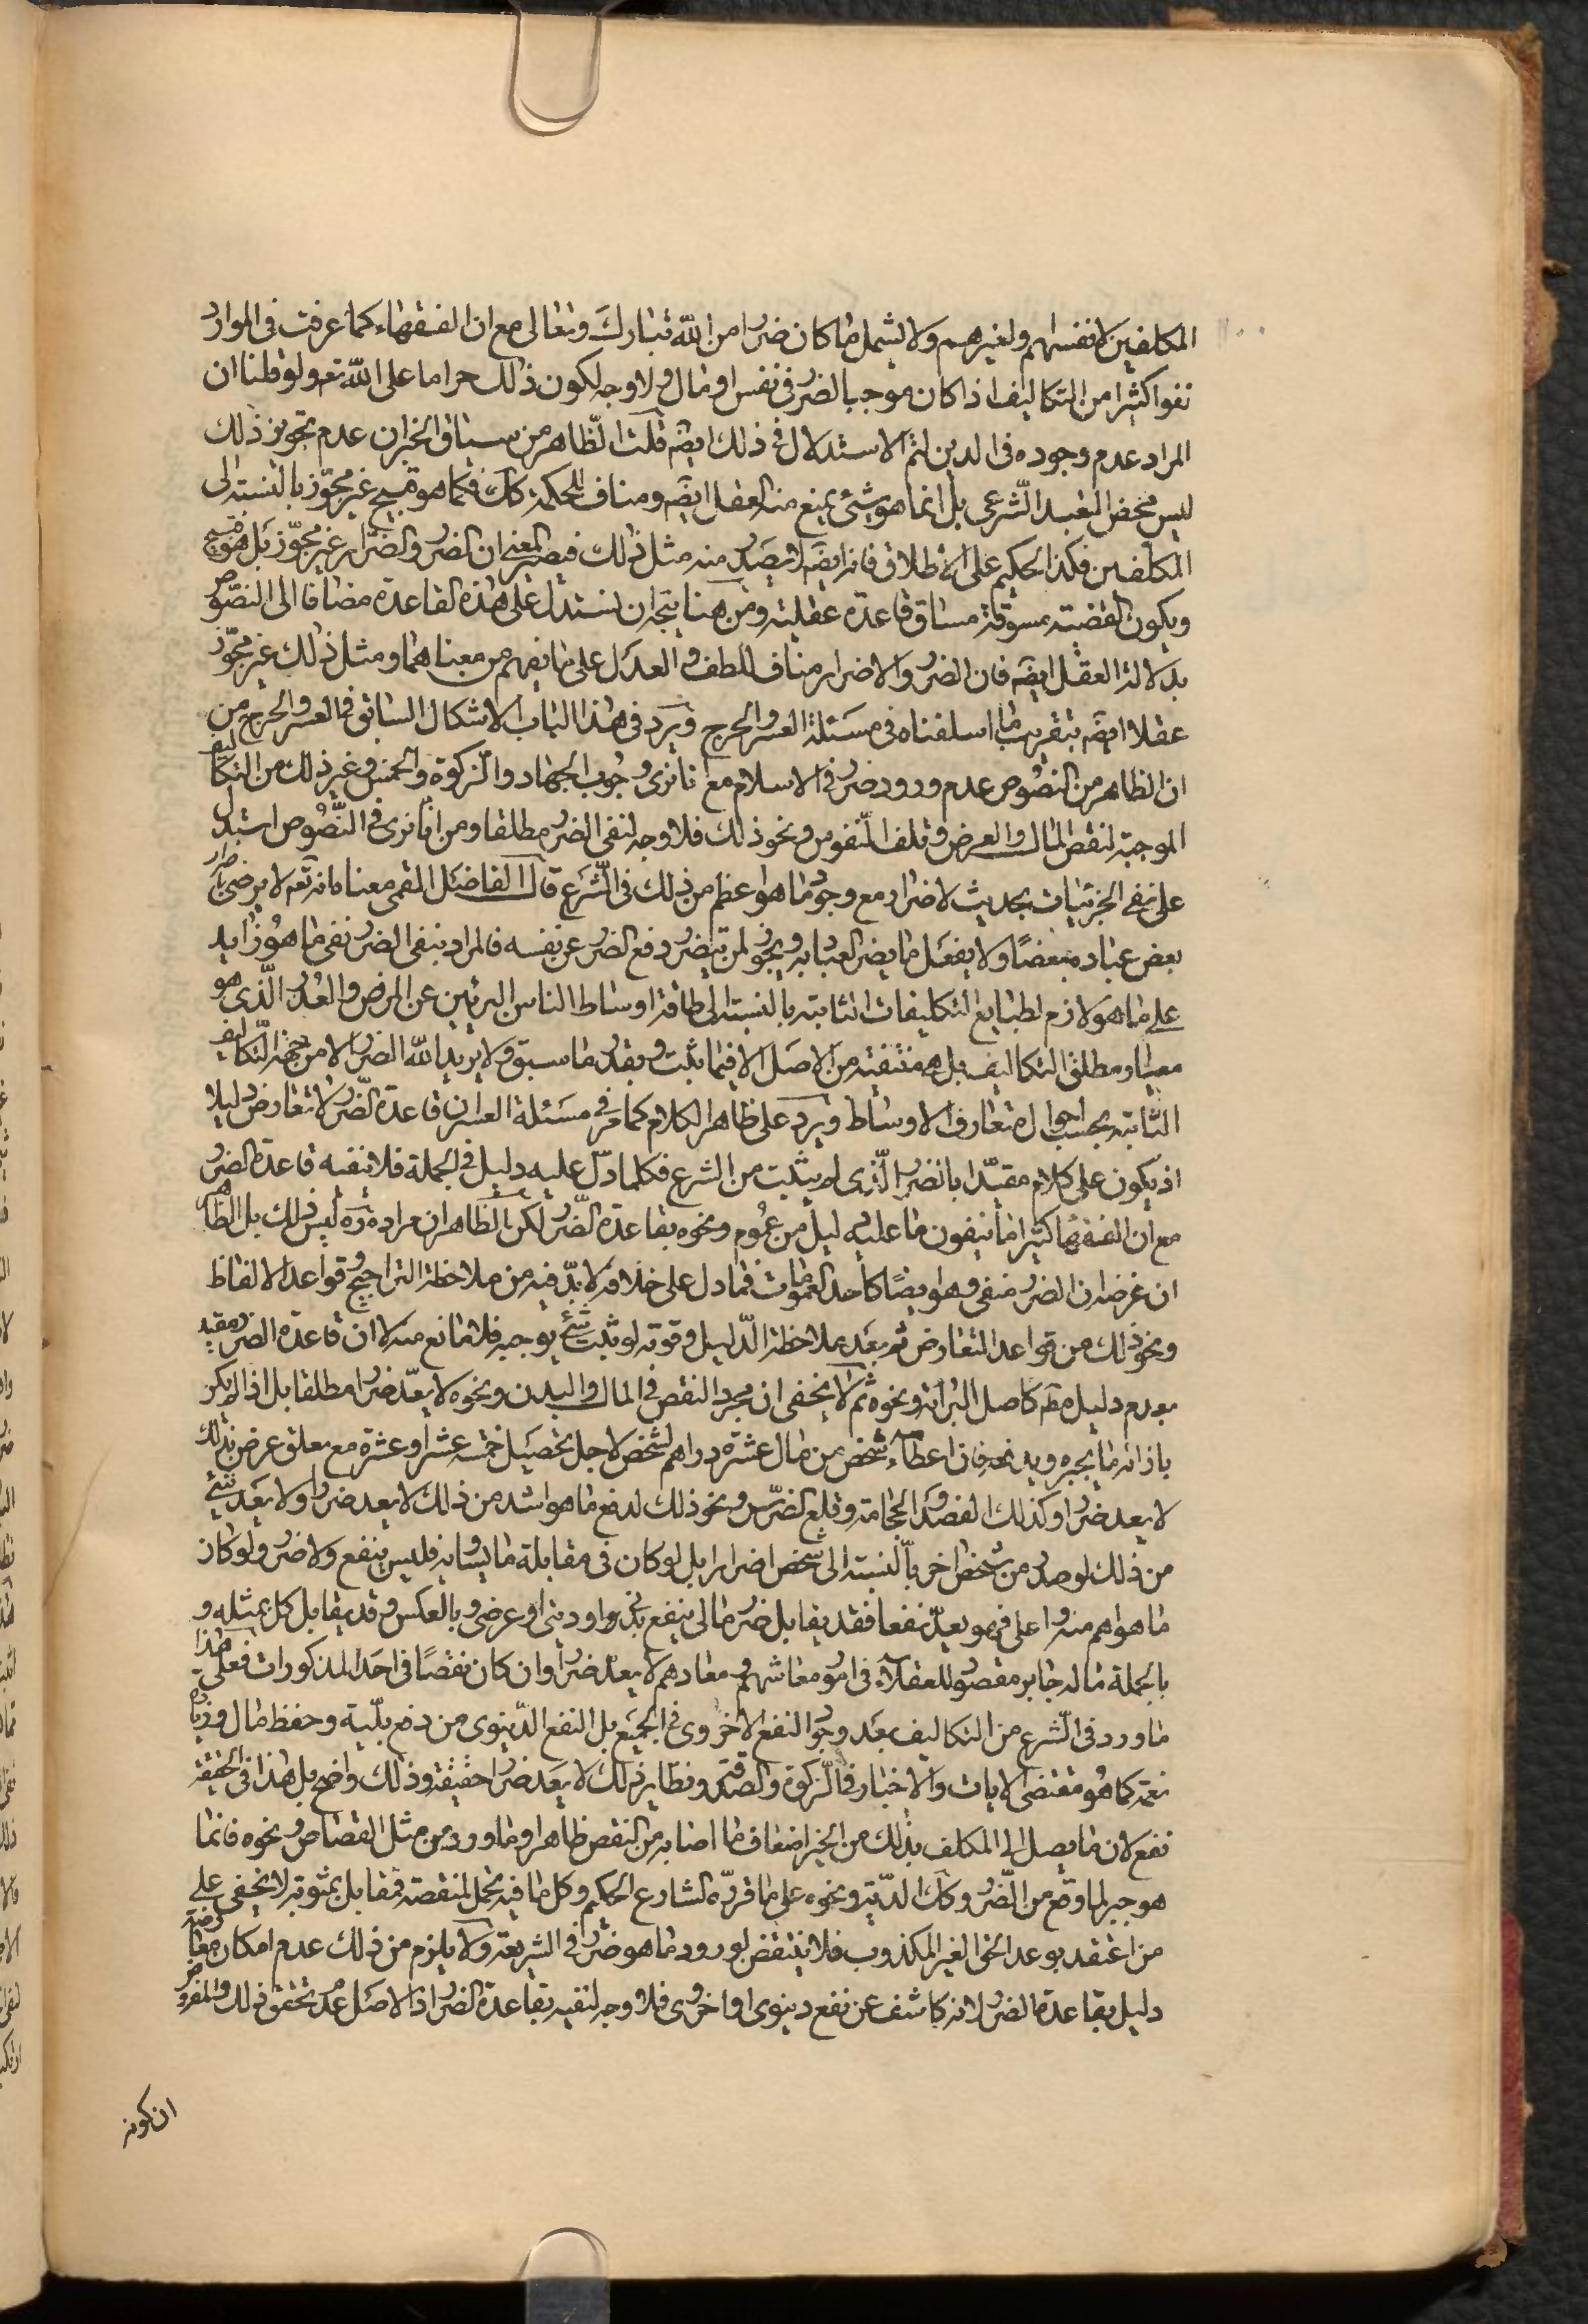 المكلفين لانفسهم ولغيرهم ولا يشمل ما كان ضررا من الله تبارك وتعالى مع ان الفقهاء كما عرفت فى الموارد
نفوا كثيرا من التكاليف اذا كان موجبا لضرر فى نفس او مال ولا وجه لكون ذلك حراما على الله تعم ولو قلنا ان
المراد عدم وجوده فى الدين لتم الاستدلال فى ذلك ايضه قلت الظاهر من سياق الخبر ان عدم تجويز ذلك
ليس محض التعبد الشرعى بل انما هو شئ يمنع منه العقل ايضه ومناف للحكمة كك فكما هو قبيح غير مجوز بالنسبة الى
المكلفين فكذا الحكيم على الاطلاق فانه ايضه لا يصدر منه مثل ذلك فيصير المعنى ان الضرر والضرار غير مجوز بل هو قبيح
ويكون القضية مسوقة مساق قاعدة عقلية ومن هنا يتجه ان نستدل على هذه القاعدة مضافا الى النصوص
بدلالة العقل ايضه فان الضرر والاضرار مناف للطف والعدل على ما يفهم من معناهما ومثل ذلك غير مجوز
عقلا ايضه بتقريب ما اسلفناه فى مسئلة العسر والحرج ويرد فى هذا الباب الاشكال السابق فى العسر والحرج من
ان الظاهر من النصوص عدم ورود ضرر فى الاسلام مع انا نرى وجوب الجهاد والزكوة والخمس وغير ذلك من التكاليف
الموجبة لنقص المال والعرض وتلف النفوس ونحو ذلك فلا وجه لنفى الضرر مطلقا ومن انا نرى فى النصوص استدل
على نفى الجزئيات بحديث لا ضرار مع وجود ما هو اعظم من ذلك فى الشرع قال الفاضل القمى معناه انه تعم لا يرضى باضرار
بعض عباده بعضا ولا يفعل ما يضر العباد به ويجوز لمن تيضرر دفع الضرر عن نفسه فالمراد بنفى الضرر نفى ما هو زايد
على ما هو لازم لطبايع التكليفات الثابتة بالنسبة الى طاقة اوساط الناس البرئين عن المرض والعذر الذى هو
معيار مطلق التكاليف بل هى منتفية من الاصل الا فيما ثبت وبقدر ما سبق ولا يريد الله الضرر الا من جهة التكاليف
الثابتة بحسب احوال متعارف الاوساط ويرد على ظاهر الكلام كما مر فى مسئلة العسر ان قاعدة الضرر لا تعارض دليلا
اذ يكون على كلامه مقيدا بالضرر الذى لم يثبت من الشرع فكلما دل عليه دليل فى الجملة فلا تنفيه قاعدة الضرر
مع ان الفقهاء كثيرا ما ينفون ما عليه دليل من عموم ونحوه بقاعدة الضرر لكن الظاهر ان مراده ره ليس ذلك بل الظاهر
ان غرضه ان الضرر منفى وهو ايضا كاحد العمومات فما دل على خلافه لا بد فيه من ملاحظة التراجيح وقواعد الالفاظ
ونحو ذلك من قواعد التعارض ثم بعد ملاحظة الدليل وقوته لو ثبت شئ يوجبه فلا مانع منه لا ان قاعدة الضرر مقيد
بعدم دليل مطم كاصل البرائة ونحوه ثم لا يخفى ان مجرد النقص فى المال والبدن ونحوه لا يعد ضررا مطلقا بل اذا لم يكن
بازائه ما يجبره ويدفعه فان اعطاء شخص من مال عشرة دراهم لشخص لاجل تحصيل خمسة عشر او عشرة مع معلق غرض بذلك
لا يعد ضررا وكذلك الفصد والحجامة وقلع الضرس ونحو ذلك لدفع ما هو اشد من ذلك لا يعد ضررا ولا يعد شئ
من ذلك لو صدر من شخص اخر بالنسبة الى شخص اضرارا بل لو كان فى مقابلة ما يساويه فليس بنفع ولا ضرر ولو كان
ما هو اهم منه واعلى فهو يعد نفعا فقد يقابل ضرر مالى بنفع بدنى او دينى او عرضى وبالعكس وقد يقابل كل بمثله و
بالجملة ما له جابر مقصود للعقلاء فى امور معاشهم ومعادهم لا يعد ضررا وان كان نقصا فى احد المذكورات فعلى هذا
ما ورد فى الشرع من التكاليف بعد وجود النفع الاخروى فى الجميع بل النفع الدنيوى من دفع بلية وحفظ مال وزيادة
نعمة كما هو مقتضى الايات والاخبار فى الزكوة والصدقة ونظاير ذلك لا يعد ضررا حقيقة وذلك واضح بل هذا فى الحقيقة
نفع لان ما يصل الى المكلف بذلك من الخير اضعاف ما اصابه من النقص ظاهرا وما ورد من مثل القصاص ونحوه فانما
هو جبر لما وقع من الضرر وكك الدية ونحوه على ما قرره الشارع الحكيم وكل ما فيه تحمل لمنقصة فمقابل بمثوبة لا تخفى على
من اعتقد بوعد الحق الغير المكذوب فلا ينتقض بورود ما هو ضرر فى الشريعة ولا يلزم من ذلك عدم امكان معارضة
دليل بقاعدة الضرر لانه كاشف عن نفع دنيوى او اخروى فلا وجه لنفيه بقاعدة الضرر اذ الاصل عدم تحقق ذلك والمفروض
ان كونه